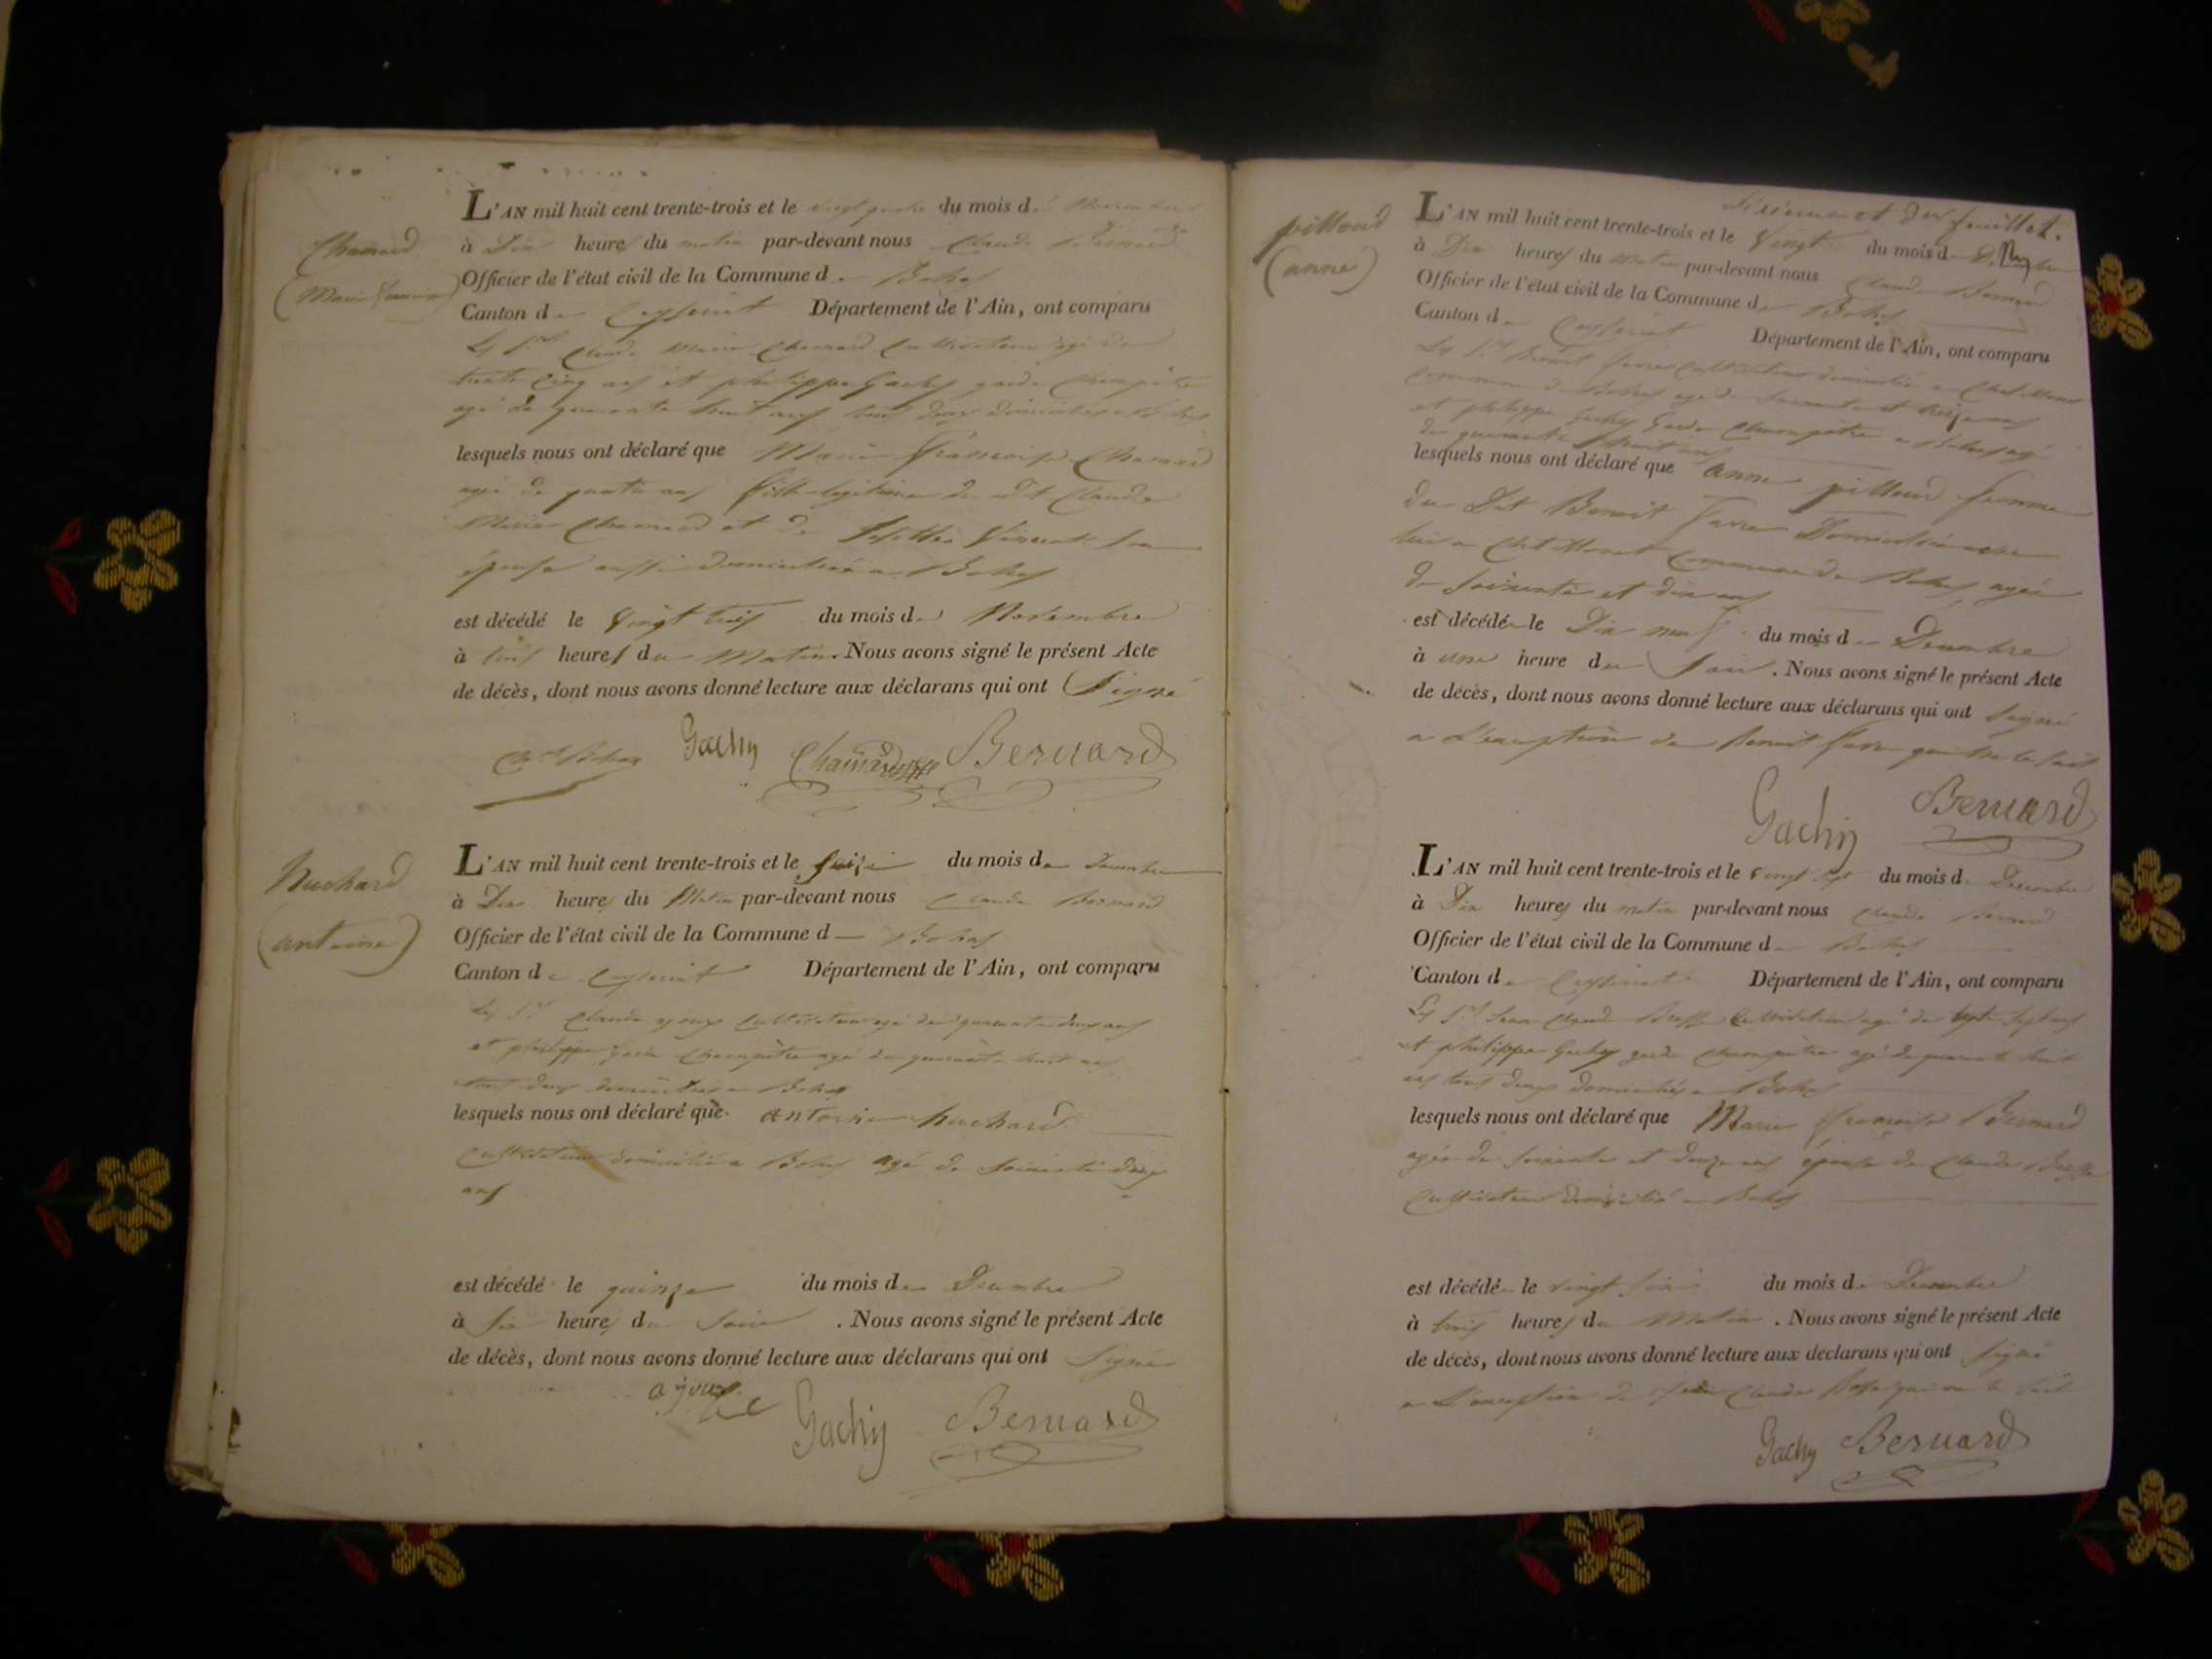 Chamard
(Marie françoise)
L'AN mil huit cent trente-trois et le vingt quatre du mois de Novembre
à Dix heures du matin par-devant nous Claude Bernard
Officier de l'état civil de la Commune de Bohas
Canton de Ceyseriat Département de l'Ain, ont comparu
Les Srs Claude Marie Chamard Cultivateur agé de
trente Cinq ans et philippe Gachy garde Champêtre
agé de quarante huit ans tous deux domiciliés a Bohas
lesquels nous ont déclaré que Marie françoise Chamard
agé de quatre ans fille légitime du dit Claude
Marie Chamard et de Vincent son
épouse aussi domiciliée a Bohas
est décédé le vingt trois du mois de Novembre
à trois heures du Matin. Nous avons signé le présent Acte
de décès, dont nous avons donné lecture aux déclarans qui ont Signé
Gachy Chamard Bernard
huchard
(antoine)
L'AN mil huit cent trente-trois et le seize du mois de Decembre
à Dix heures du Matin par-devant nous Claude Bernard
Officier de l'état civil de la Commune de Bohas
Canton de Ceyseriat Département de l'Ain, ont comparu
Les Srs Claude ajoux Cultivateur agé de quarante deux ans
et philippe garde Champêtre agé de quarante huit ans
tous deux domiciliés a Bohas
lesquels nous ont déclaré que antoine huchard
Cultivateur domicilié a Bohas agé de soixante
ans
est décédé le quinze du mois de Decembre
à Six heures du Soir. Nous avons signé le présent Acte
de décès, dont nous avons donné lecture aux déclarans qui ont Signé
ajoux Gachy Bernard
Sixieme et der feuillet.
pilloud
(anne)
L'AN mil huit cent trente-trois et le Vingt du mois de
à Dix heures du matin par-devant nous Claude Bernard
Officier de l'état civil de la Commune de Bohas
Canton de Ceyseriat Département de l'Ain, ont comparu
Les Srs Benoit favre Cultivateur domicilié a
commune de Bohas agé de soixante et treize ans
et philippe Gachy Garde Champêtre a Bohas agé
de quarante huit ans
lesquels nous ont déclaré que anne pilloud femme
du Dit Benoit favre Domiciliée avec
lui a commune de Bohas agée
de soixante et dix ans
est décédée le Dix neuf du mois de Decembre
à une heure du Soir. Nous avons signé le présent Acte
de décès, dont nous avons donné lecture aux déclarans qui ont Signé
a L'exception de Benoit favre qui ne le sait
Gachy Bernard
L'AN mil huit cent trente-trois et le vingt sept du mois de Decembre
à Dix heures du matin par-devant nous Claude Bernard
Officier de l'état civil de la Commune de Bohas
Canton de Ceyseriat Département de l'Ain, ont comparu
Les Srs Jean Claude Cultivateur agé de sept ans
et philippe Gachy garde Champêtre agé de quarante huit
ans tous deux domiciliés a Bohas
lesquels nous ont déclaré que Marie françoise Bernard
agée de soixante et douze ans épouse de Claude
Cultivateur domicilié a Bohas
est décédée le vingt six du mois de Decembre
à trois heures du Matin. Nous avons signé le présent Acte
de décès, dont nous avons donné lecture aux déclarans qui ont Signé
a L'exception de Jean Claude qui ne le sait
Gachy Bernard